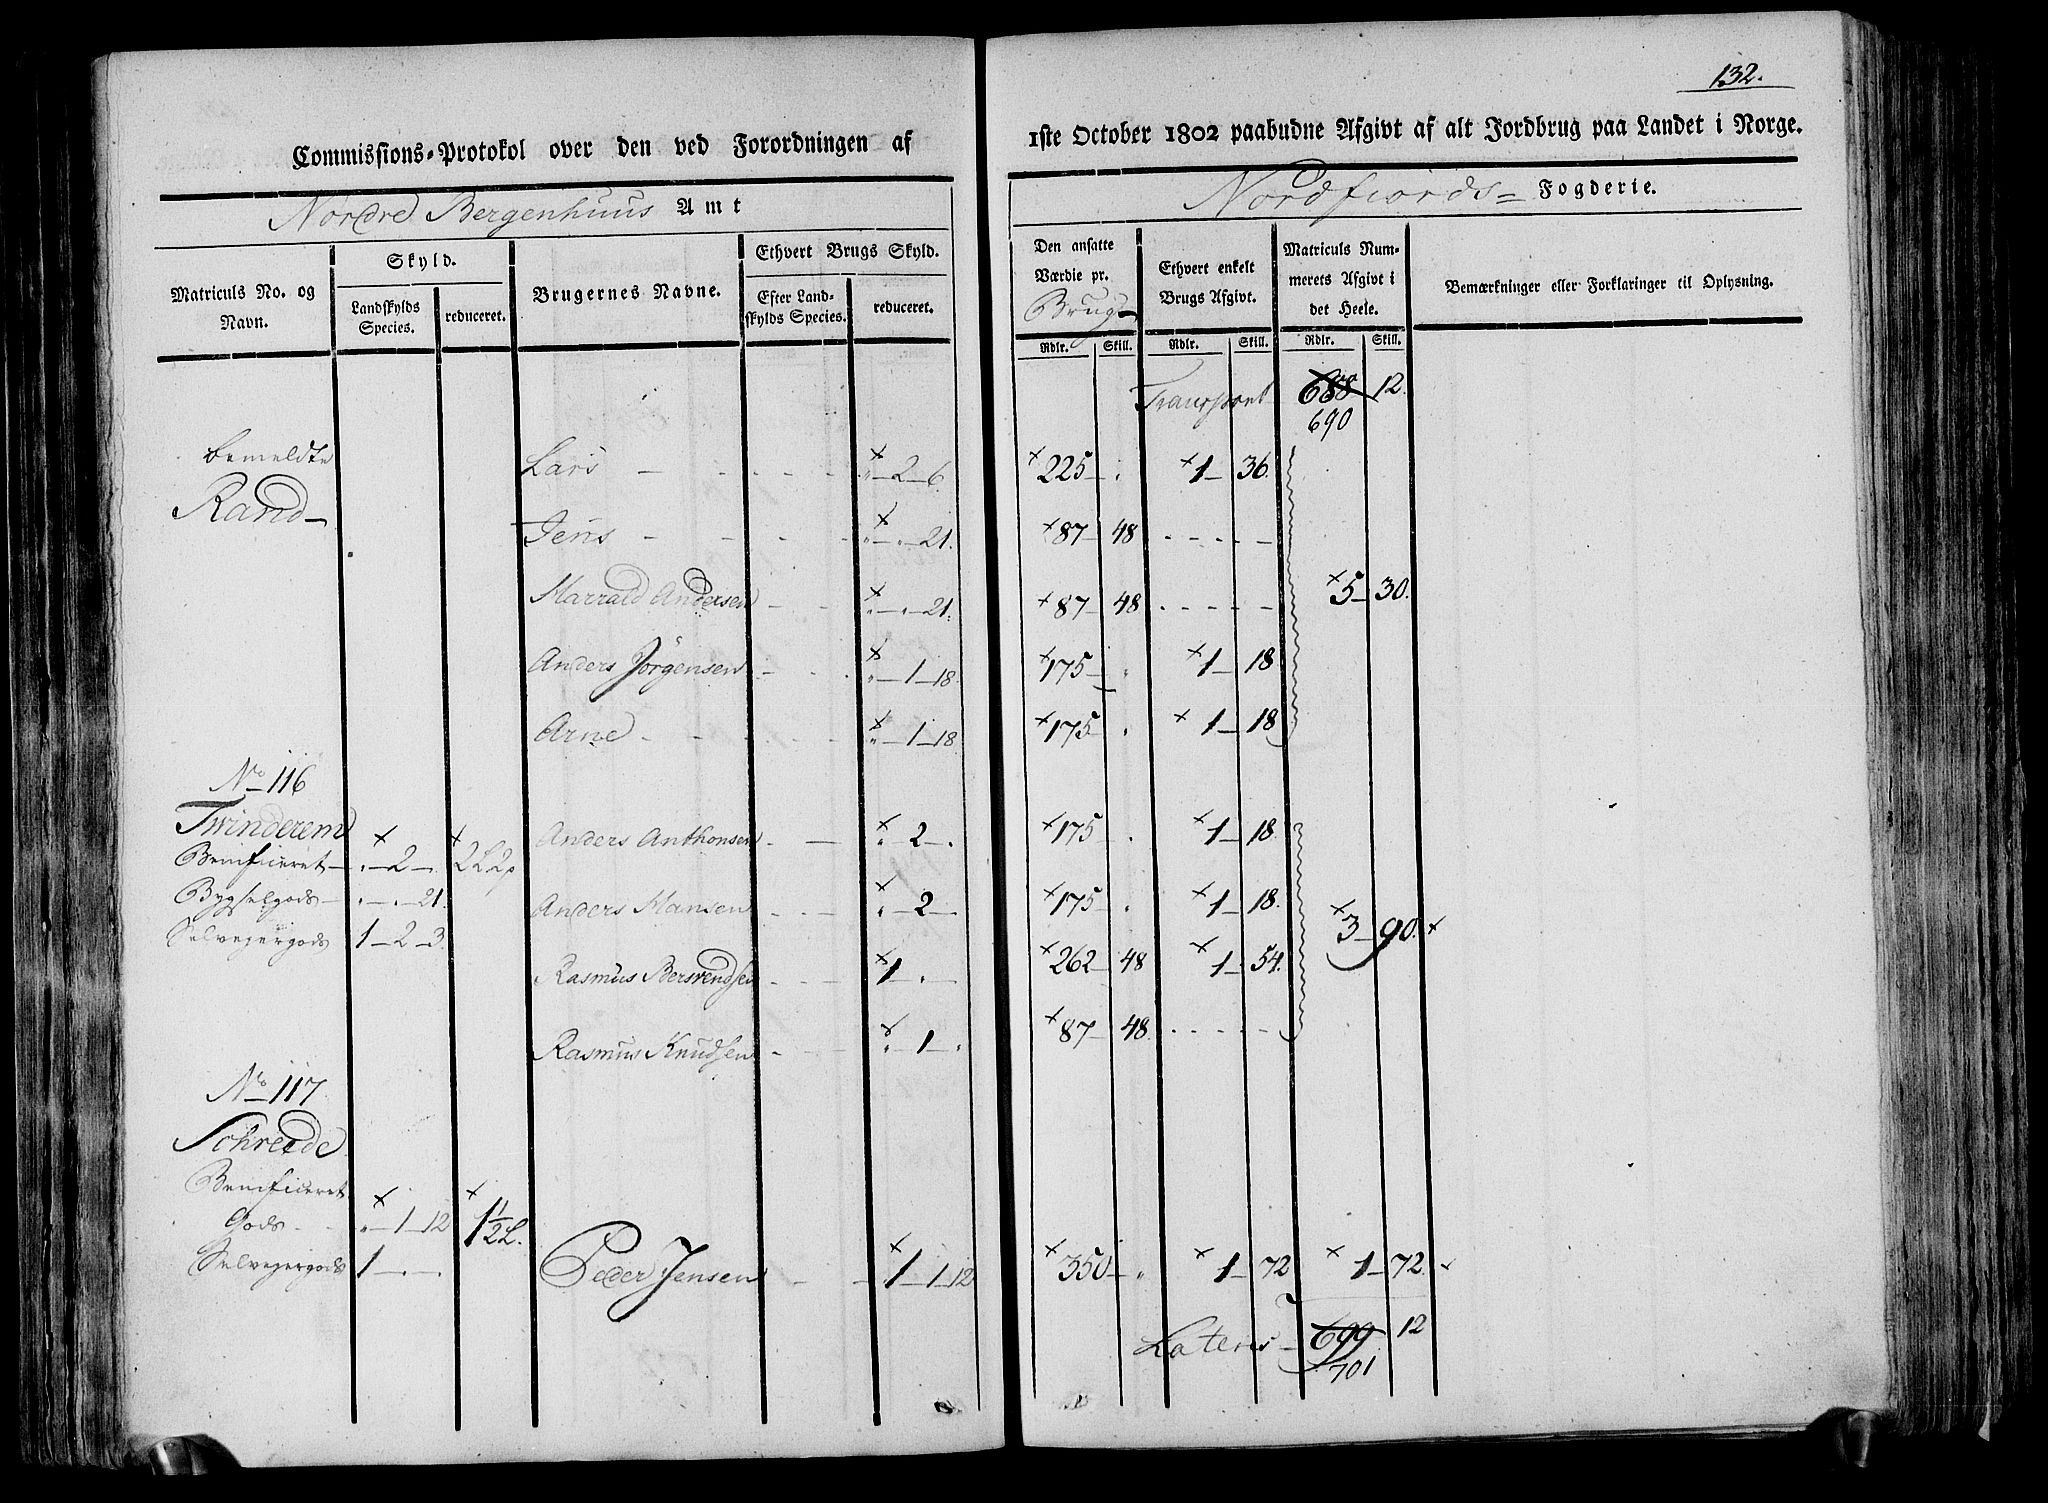 132.
Commissions-Protokol over den ved Forordningen af
1ste October 1802 paabudne Afgivt af alt Jordbrug paa Landet i Norge.
Nordre Bergenhuus Amt
Nordfiords- Fogderie.
Matriculs No. og Navn.
Skyld.
Landskylds Species.
reduceret.
Brugernes Navne.
Ethvert Brugs Skyld.
Efter Landskylds Species.
reduceret.
Den ansatte Værdie pr. Brug
Ethvert enkelt Brugs Afgivt.
Matriculs Nummerets Afgivt i det Heele.
Bemærkninger eller Forklaringer til Oplysning.
Rdlr. Skill. Rdlr. Skill. Rdlr. Skill.
Transport 688 12.
690
bemeldte
Rand-
Lars - - - - " - 2 - 6. 225 - . 1 - 36.
Jens - - - - " - " - 21. 87 - 48 - - - - -
Harrald Andersen - - " - " - 21. 87 - 48 - - - - - 5 - 30.
Anders Jørgensen - - " - 1 - 18. 175 - " 1 - 18
Arne - - - - " - 1 - 18. 175 - . 1 - 18
No 116
Twinderem
Benificeret - " - 2 - . 2 L 2 p Anders Anthonsen - - " - 2 - . 175 - . 1 - 18.
Bygselgods - " - " - 21. Anders Hansen - - " - 2 - . 175 - . 1 - 18. 3 - 90.
Selvejergods 1 - 2 - 3. Rasmus Bersvendsen - - 1 - . - 262 - 48 1 - 54.
Rasmus Knudsen - - " - 1 - . 87 - 48. - - - - -
No 117
Schreede
Benificeret
Gods - - " - 1 - 12 1 1/2 L.
Selvejergods 1 - . - Peder Jensen - - 1 - 1 - 12 350 - " 1 - 72 1 - 72.
Lateris - 699 12
701